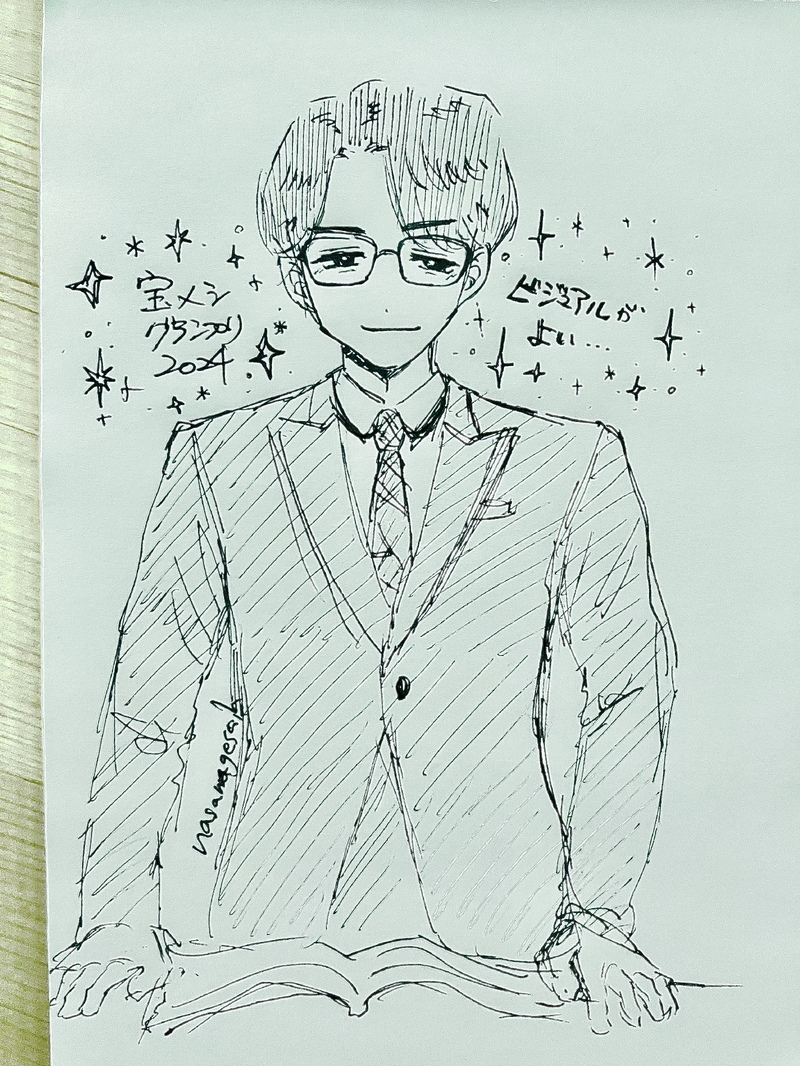 宝メシ
グランプリ
2024
ビジュアルが
よい...
nasamagesak